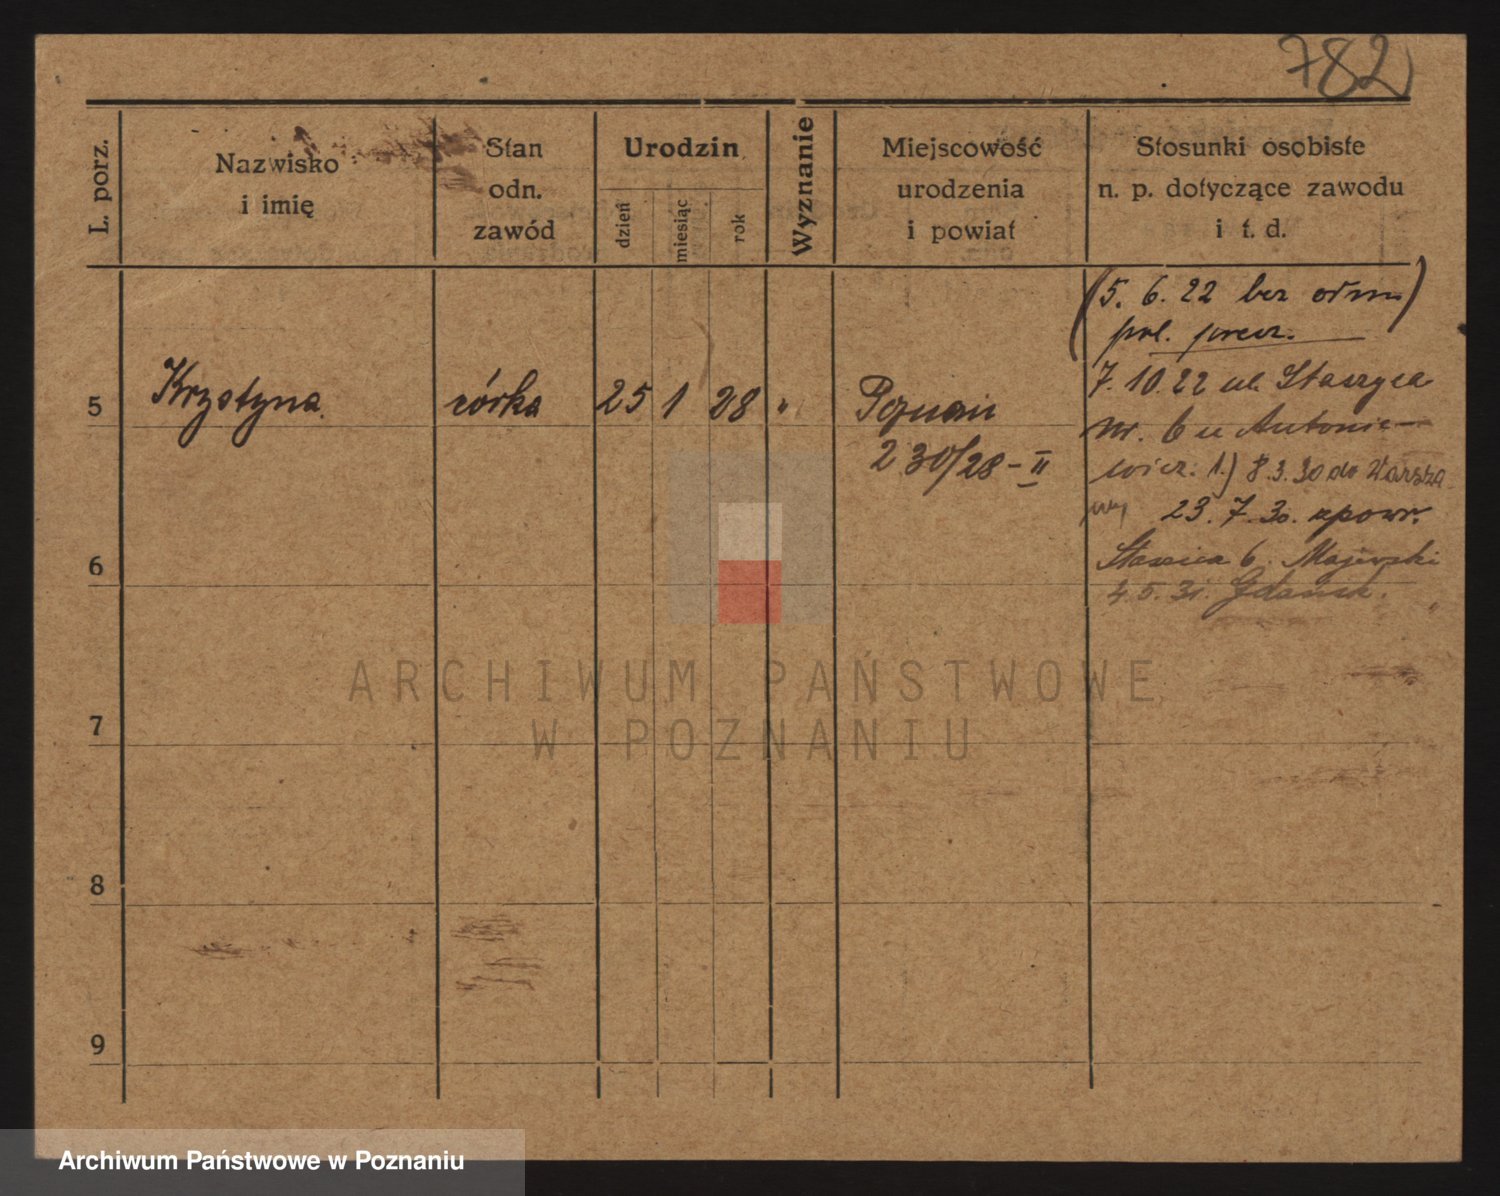 782
L. porz.
Nazwisko
i imię
Stan
odn.
zawód
Urodzin
dzień
miesiąc
rok
Wyznanie
Miejscowość
urodzenia
i powiat
Stosunki osobiste
n. p. dotyczące zawodu
i t. d.
(5. 6. 22 bez odm)
pol. przez.
7. 10. 22 ul. Staszyca
5 Krzystyna córka 25 1 28 " Poznań
nr. 6 u Antonie-
230/28-II
wicz. 1.) 8.3.30 do Warsza
wy 23. 7. 30. zpowr.
6
Staszica 6. Majewski
4.5.31. Gdańsk.
7
8
9
ARCHIWUM PAŃSTWOWE
W POZNANIU
Archiwum Państwowe w Poznaniu